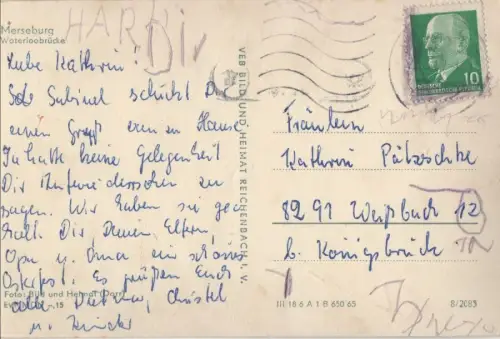 Merseburg
Waterloobrücke
HARDI
Liebe Kathrin!
Sabinel schickt Dir
einen Gruß von zu Hause.
Ich hatte keine Gelegenheit
Dir Aufwiedersehen zu
sagen. Wir haben sie ge
holt. Dir Deinen Eltern,
Opa u. Oma ein schönes
Osterfest. Es grüßen Euch
alle Dieter, Christel
u. Kinder
Foto: Bild und Heimat
-.15
VEB BILD UND HEIMAT REICHENBACH I. V.
10
DEUTSCHE
DEMOKRATISCHE REPUBLIK
Fräulein
Kathrin Pätzschke
8291 Weißbach 12
b. Königsbrück
III 18 6 A 1 B 650 65
8/2085